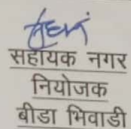 सहायक नगर
नियोजक
बीडा भिवाडी